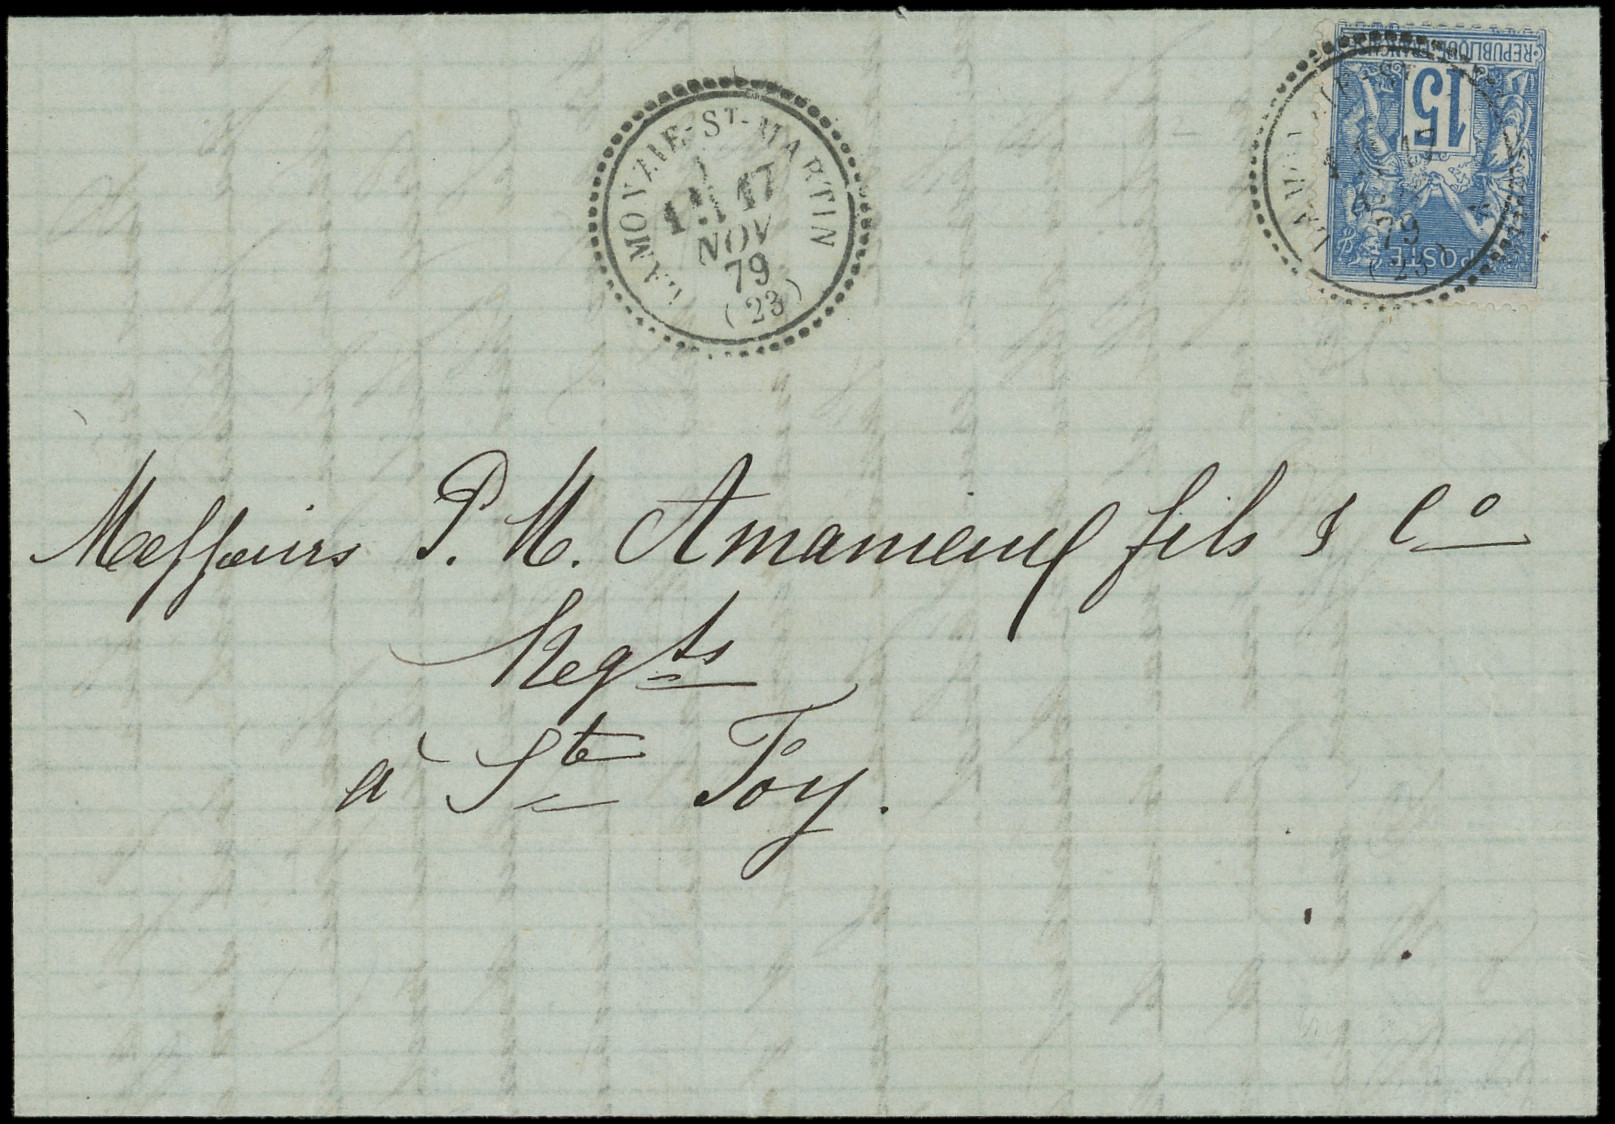 LAMOVZIE-ST-MARTIN
17
NOV
79
(23)
REPUBLIQUE FRANCAISE
15
POSTE
79
(23)
Messieurs P. M. Amanieux fils & Cº
Negts
à Ste Foy.